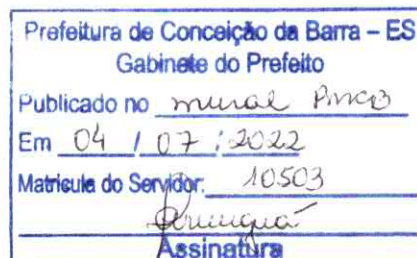 Prefeitura de Conceição da Barra – ES
Gabinete do Prefeito
Publicado no mural PMCB
Em 04 / 07 / 2022
Matricula do Servidor: 10503
Assinatura